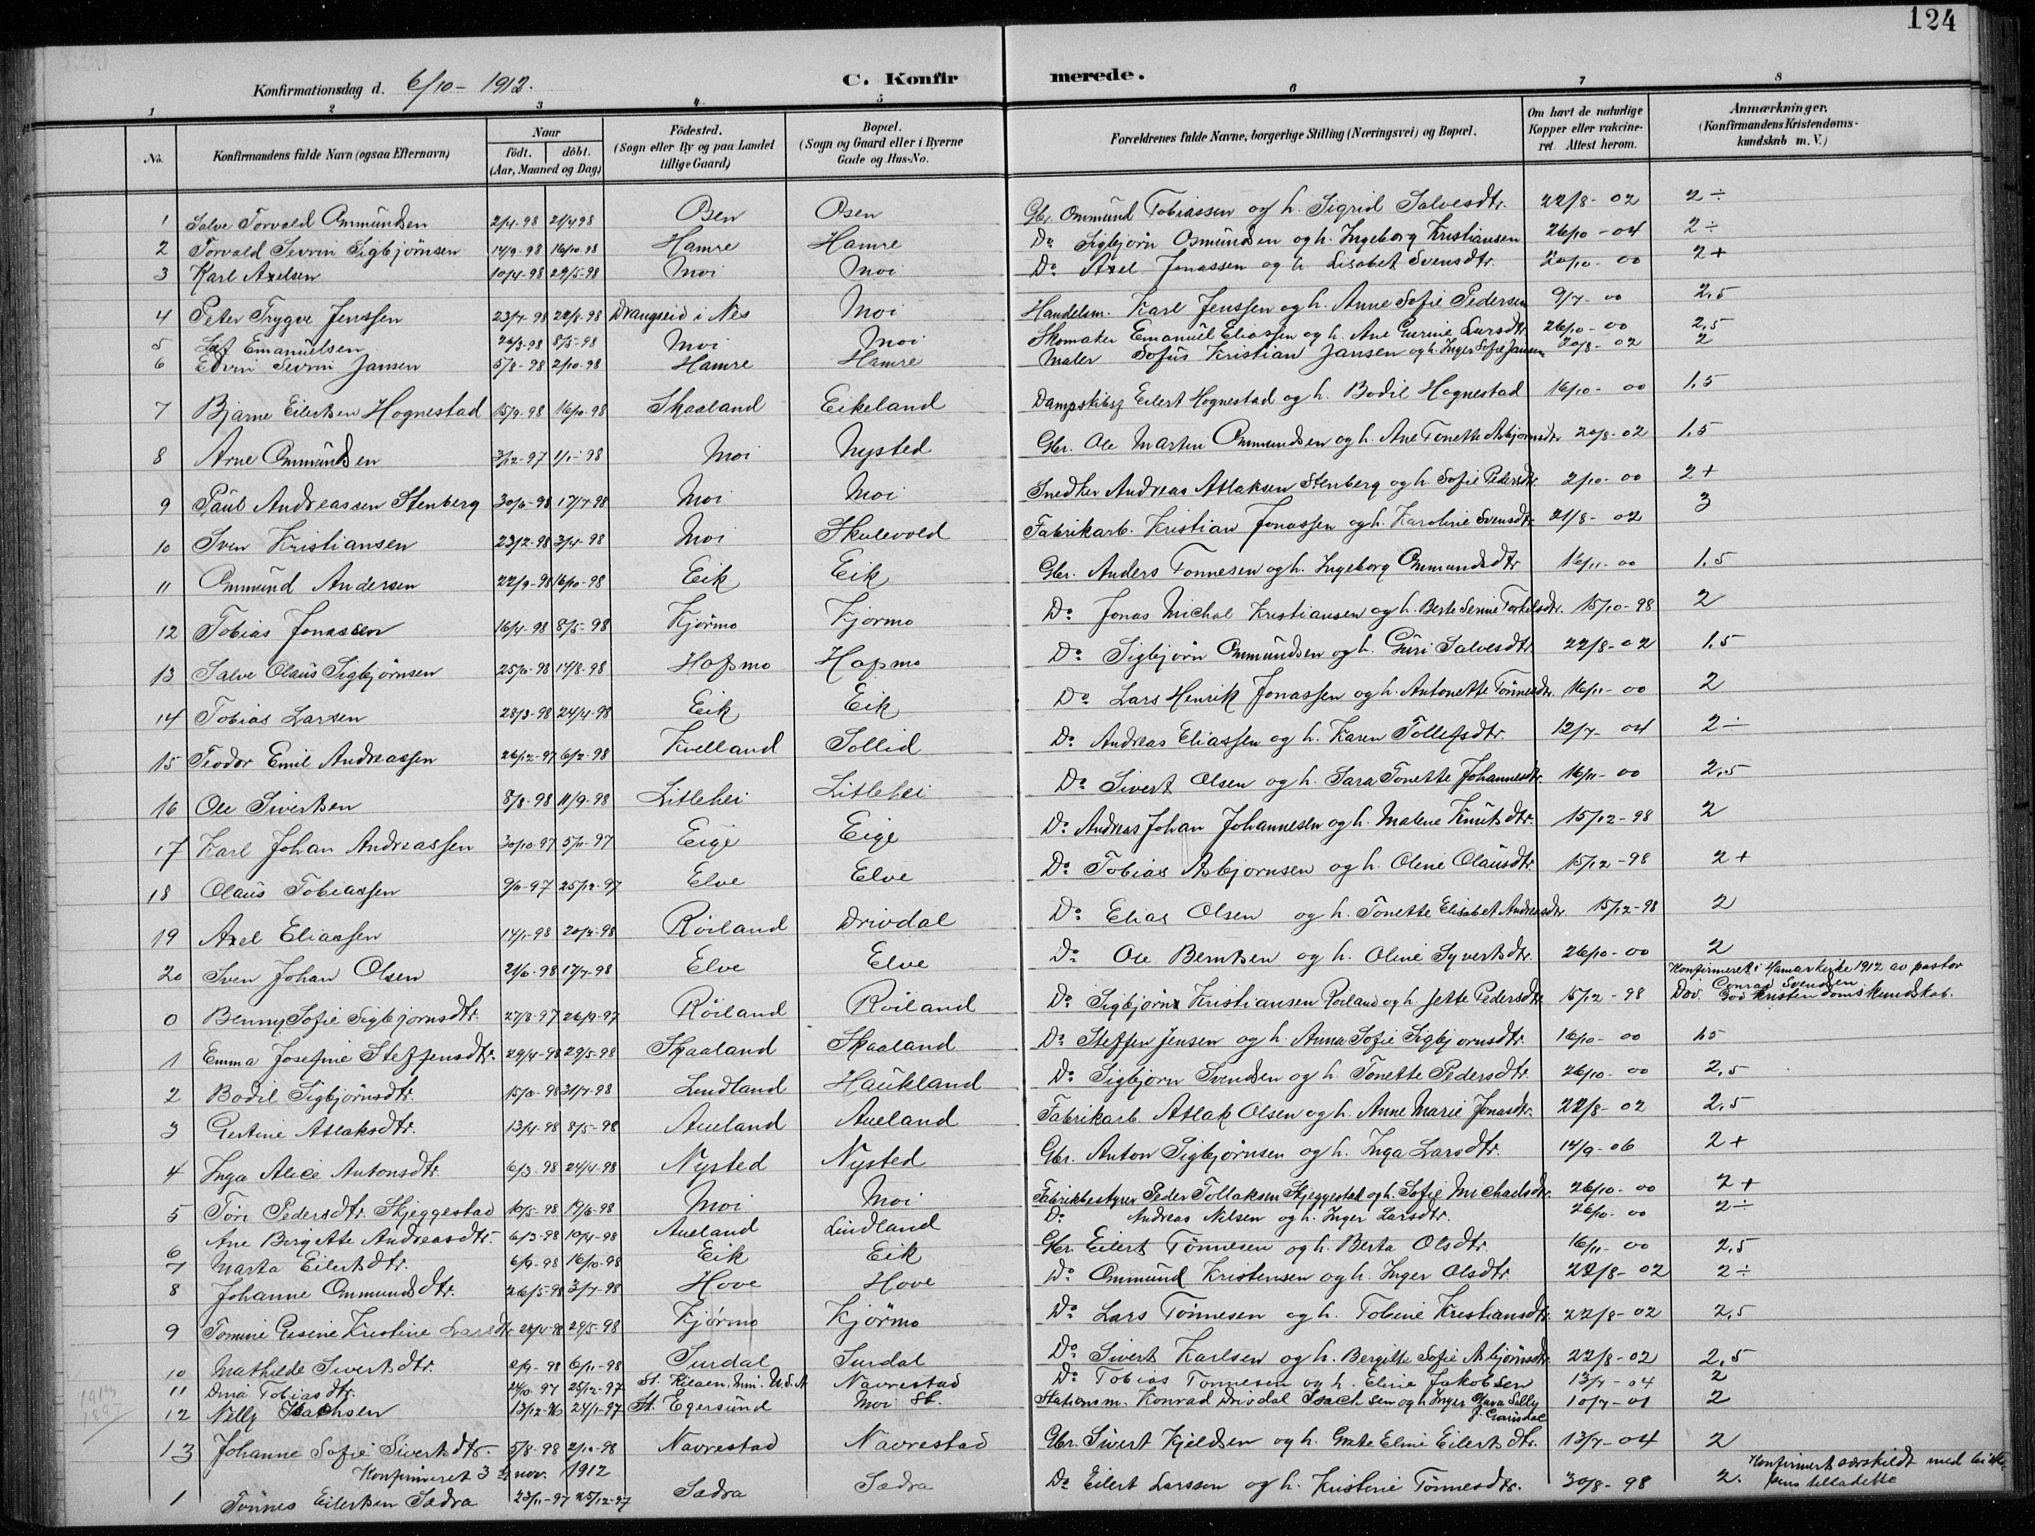 124
Konfirmationsdag d. 6/10 - 1912.
C. Konfirmerede.
1 2 3 4 5 6 7 8
No. Konfirmandens fulde Navn (ogsaa Efternavn) Naar født. døbt. (Aar, Maaned og Dag) Fødested. (Sogn eller By og paa Landet tillige Gaard) Bopæl. (Sogn og Gaard eller i Byerne Gade og Hus-No. Forældrenes fulde Navne, borgerlige Stilling (Næringsvei) og Bopæl. Om havt de naturlige Kopper eller vakcineret. Attest herom. Anmærkninger. (Konfirmandens Kristendomskundskab m. V.)
1 Salve Torvald Ommundsen 2/4-98 21/4 98 Osen Osen Gbr. Ommund Tobiassen og h. Sigrid Salvesdtr. 22/8-02 2÷
2 Torvald Sevrin Sigbjørnsen 14/9-98 16/10-98 Hamre Hamre Do Sigbjørn Osmundsen og h. Ingeborg Kristiansen 26/10-04 2÷
3 Karl Axelsen 10/4-98 29/5-98 Moi Moi Do Axel Jonassen og h. Lisabet Svensdtr. 20/10-00 2+
4 Peter Trygve Jenssen 23/4-98 22/8-98 Drangseid i Nes Moi Handelsm. Karl Jenssen og h. Anne Sofie Pedersen 9/7-00 2,5
5 Emanuelsen 26/3-98 8/5-98 Moi Moi Skomaker Emanuel Eliassen og h. Ane Gurine Larsdtr. 26/10-00 2,5
6 Edvin Sevrin Jansen 5/8-98 2/10-98 Hamre Hamre Maler Sofus Kristian Jansen og h. Inger Sofie Jansen 20/8-02 2
7 Bjarne Eilertsen Hognestad 15/9-98 16/10-98 Skaaland Eikeland Dampskibsf. Eilert Hognestad og h. Bodil Hognestad 16/10-00 1,5
8 Arne Ommundsen 3/12-97 1/1-98 Moi Nysted Gbr. Ole Martin Ommundsen og h. Ane Tonette Asbjørnsdtr 20/8-02 1,5
9 Paul Andreassen Stenberg 30/6-98 17/7-98 Moi Moi Snedker Andreas Atlaksen Stenberg og h. Sofie Pedersdtr. 2/10-00 2+
10 Sven Kristiansen 23/2-98 3/4-98 Moi Skulevold Fabrikarb. Kristian Jonassen og h. Karoline Svensdtr. 21/8-02 3
11 Ommund Andersen 22/9-98 16/10-98 Eik Eik Gbr. Anders Tonnesen og h. Ingeborg Ommundsdtr 16/11-00 1,5
12 Tobias Jonassen 16/4-98 8/5-98 Kjørmo Kjørmo Do Jonas Michal Kristiansen og h. Berte Serine Torkelsdtr. 15/10-98 2
13 Salve Olaus Sigbjørnsen 25/6-98 17/8-98 Hafsmo Hafsmo Do Sigbjørn Ommundsen og h. Guri Salvesdtr. 22/8-02 1,5
14 Tobias Larsen 28/3-98 24/4-98 Eik Eik Do Lars Henrik Jonassen og h. Antonette Tønnesdtr. 16/11-00 2
15 Teodor Emil Andreassen 26/12-97 6/2-98 Kvelland Sollid Do Andreas Eliassen og h. Karen Tollefsdtr. 12/7-04 2÷
16 Ole Sivertsen 8/8-98 11/9-98 Litlehei Litlehei Do Sivert Olsen og h. Sara Tonette Johannesdtr. 16/11-00 2,5
17 Karl Johan Andreassen 30/10-97 5/11-97 Eige Eige Do Andreas Johan Johannesen og h. Malene Knutsdtr. 15/12-98 2
18 Olaus Tobiassen 9/11-97 25/12-97 Elve Elve Do Tobias Asbjørnsen og h. Oline Olausdtr. 15/12-98 2+
19 Axel Eliassen 14/1-98 20/2-98 Røiland Drivdal Do Elias Olsen og h. Tonette Elisabet Andreasdtr. 15/12-98 2
20 Sven Johan Olsen 21/6-98 17/7-98 Elve Elve Do Ole Berntsen og h. Oline Syvertsdtr. 26/10-00 2
0 Benny Sofie Sigbjørnsdtr. 27/8-97 26/9-97 Røiland Røiland Do Sigbjørn Kristiansen Røiland og h. Jette Pedersdtr. 15/12-98 Konfirmeret i Hamar kirke 1912 av pastor Conrad Svendsen Døv. God kristendomskundskab.
1 Emma Josefine Steffensdtr. 29/4-98 29/5-98 Skaaland Skaaland Do Steffen Jensen og h. Anna Sofie Sigbjørnsdtr. 16/10-00 1,5
2 Bodil Sigbjørnsdtr. 15/6-98 31/7-98 Lindland Haukland Do Sigbjørn Svendsen og h. Tonette Pedersdtr. 26/10-00 2,5
3 Gertine Atlaksdtr. 13/4-98 8/5-98 Aueland Aueland Fabrikarb. Atlak Olsen og h. Anne Marie Jonasdtr. 22/8-02 2,5
4 Inga Alice Antonsdtr. 6/3-98 24/4-98 Nysted Nysted Gbr. Anton Sigbjørnsen og h. Inga Larsdtr. 14/9-06 2+
5 Tøri Pedersdtr. Skjeggestad 10/5-98 19/6-98 Moi Moi Fabrikbestyrer Peder Tollaksen Skjeggestad og h. Sofie Michaelsdtr. 26/10-00 2+
6 Ane Birgitte Andreasdtr. 6/3-98 10/4-98 Aueland Lindland Do Andreas Nilsen og h. Inger Larsdtr. 26/10-00 2÷
7 Marta Eilertsdtr. 6/9-98 16/10-98 Eik Eik Gbr. Eilert Tønnesen og h. Berta Olsdtr. 16/11-00 2,5
8 Johanne Ommundsdtr. 26/5-98 3/7-98 Hove Hove Do Ommund Kristensen og h. Inger Olsdtr. 22/8-02 2÷
9 Tomine Gesine Kristine Larsdtr 28/4-98 29/5-98 Kjørmo Kjørmo Do Lars Tønnesen og h. Tobine Kristiansdtr. 22/8-02 2,5
10 Mathilde Sivertsdtr. 2/9-98 6/11-98 Surdal Surdal Do Sivert Karlsen og h. Bergitte Sofie Asbjørnsdtr. 22/8-02 2,5
11 Dina Tobiasdtr. 24/10-97 25/12-97 St. Hilaen. Min. U.S.A Navrestad Do Tobias Tønnesen og h. Eline Jakobsen 13/7-04 2
12 Nelly Isachsen 13/12-96 24/1-97 St. Egersund Moi St. Stationsm. Konrad Drivdal Isachsen og h. Inger Gjava Selly f. Gausdal 10/7-01 2
13 Johanne Sofie Sivertsdtr 5/8-98 2/10-98 Navrestad Navrestad Gbr. Sivert Kjeldsen og h. Grete Eline Eilertsdtr. 13/7-04 2
Konfirmeret 3 nov. 1912
1 Tønnes Eilertsen Sædra 23/11-97 25/12-97 Sædra Sædra Do Eilert Larssen og h. Kristine Tønnesdtr. 30/8-98 2. Konfirmert særskildt med biskopens tilladelse